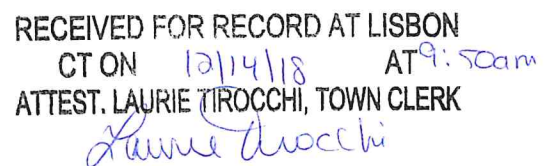 RECEIVED FOR RECORD AT LISBON
CT ON 12/14/18 AT 9:50am
ATTEST. LAURIE TIROCCHI, TOWN CLERK
Laurie Tirocchi